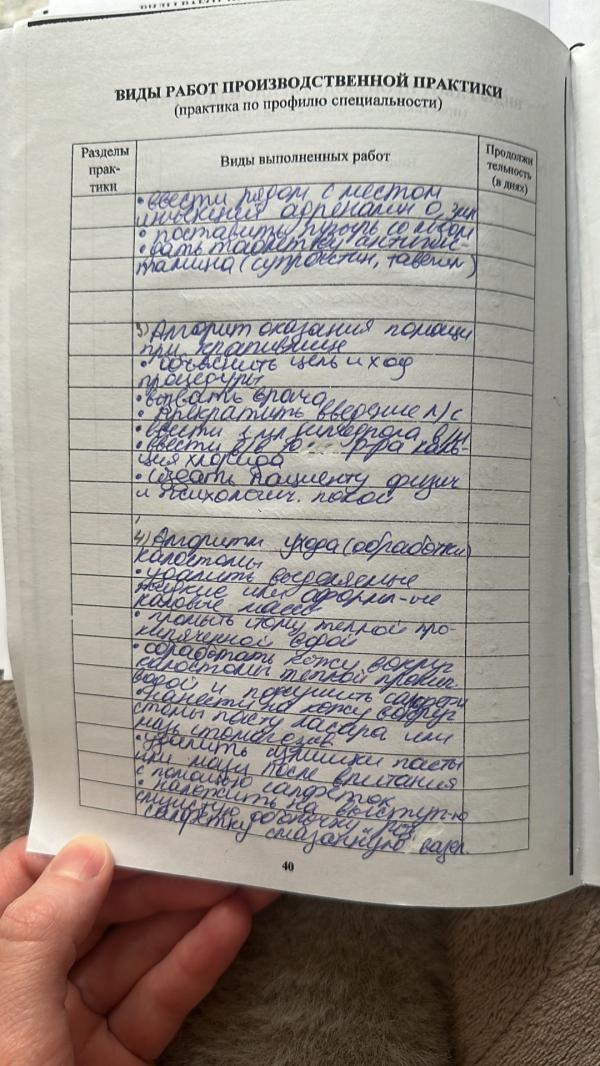 ВИДЫ РАБОТ ПРОИЗВОДСТВЕННОЙ ПРАКТИКИ
(практика по профилю специальности)
Разделы прак- тики
Виды выполненных работ
Продолжи тельность (в днях)
• ввести рядом с местом
инъекции адреналин 0,3мл
• поставить пузырь со льдом
• дать таблетку антигис-
тамина (супрастин, тавегил)
3) Алгоритм оказания помощи
при крапивнице
• объяснить цель и ход
процедуры
• вызвать врача
• прекратить введение л/с
• ввести
• ввести в/в 10 р-ра каль-
ция хлорида
• создать пациенту физич
и психологич. покой
4) Алгоритм ухода (обработки)
калостомы
• удалить выделяемые
жидкие или оформл-ые
каловые массы
• промыть стому теплой про-
кипяченной водой
• обработать кожу вокруг
калостомы теплой прокип.
водой и посушить салфетк
• нанести на кожу вокруг
стомы пасту ласара или
мазь стомагезив
• удалить излишки пасты
или мази после впитания
с помощью салфеток
• наложить на выступ-ю
слизистую оболочку
салфетку смазанную вазел.
40